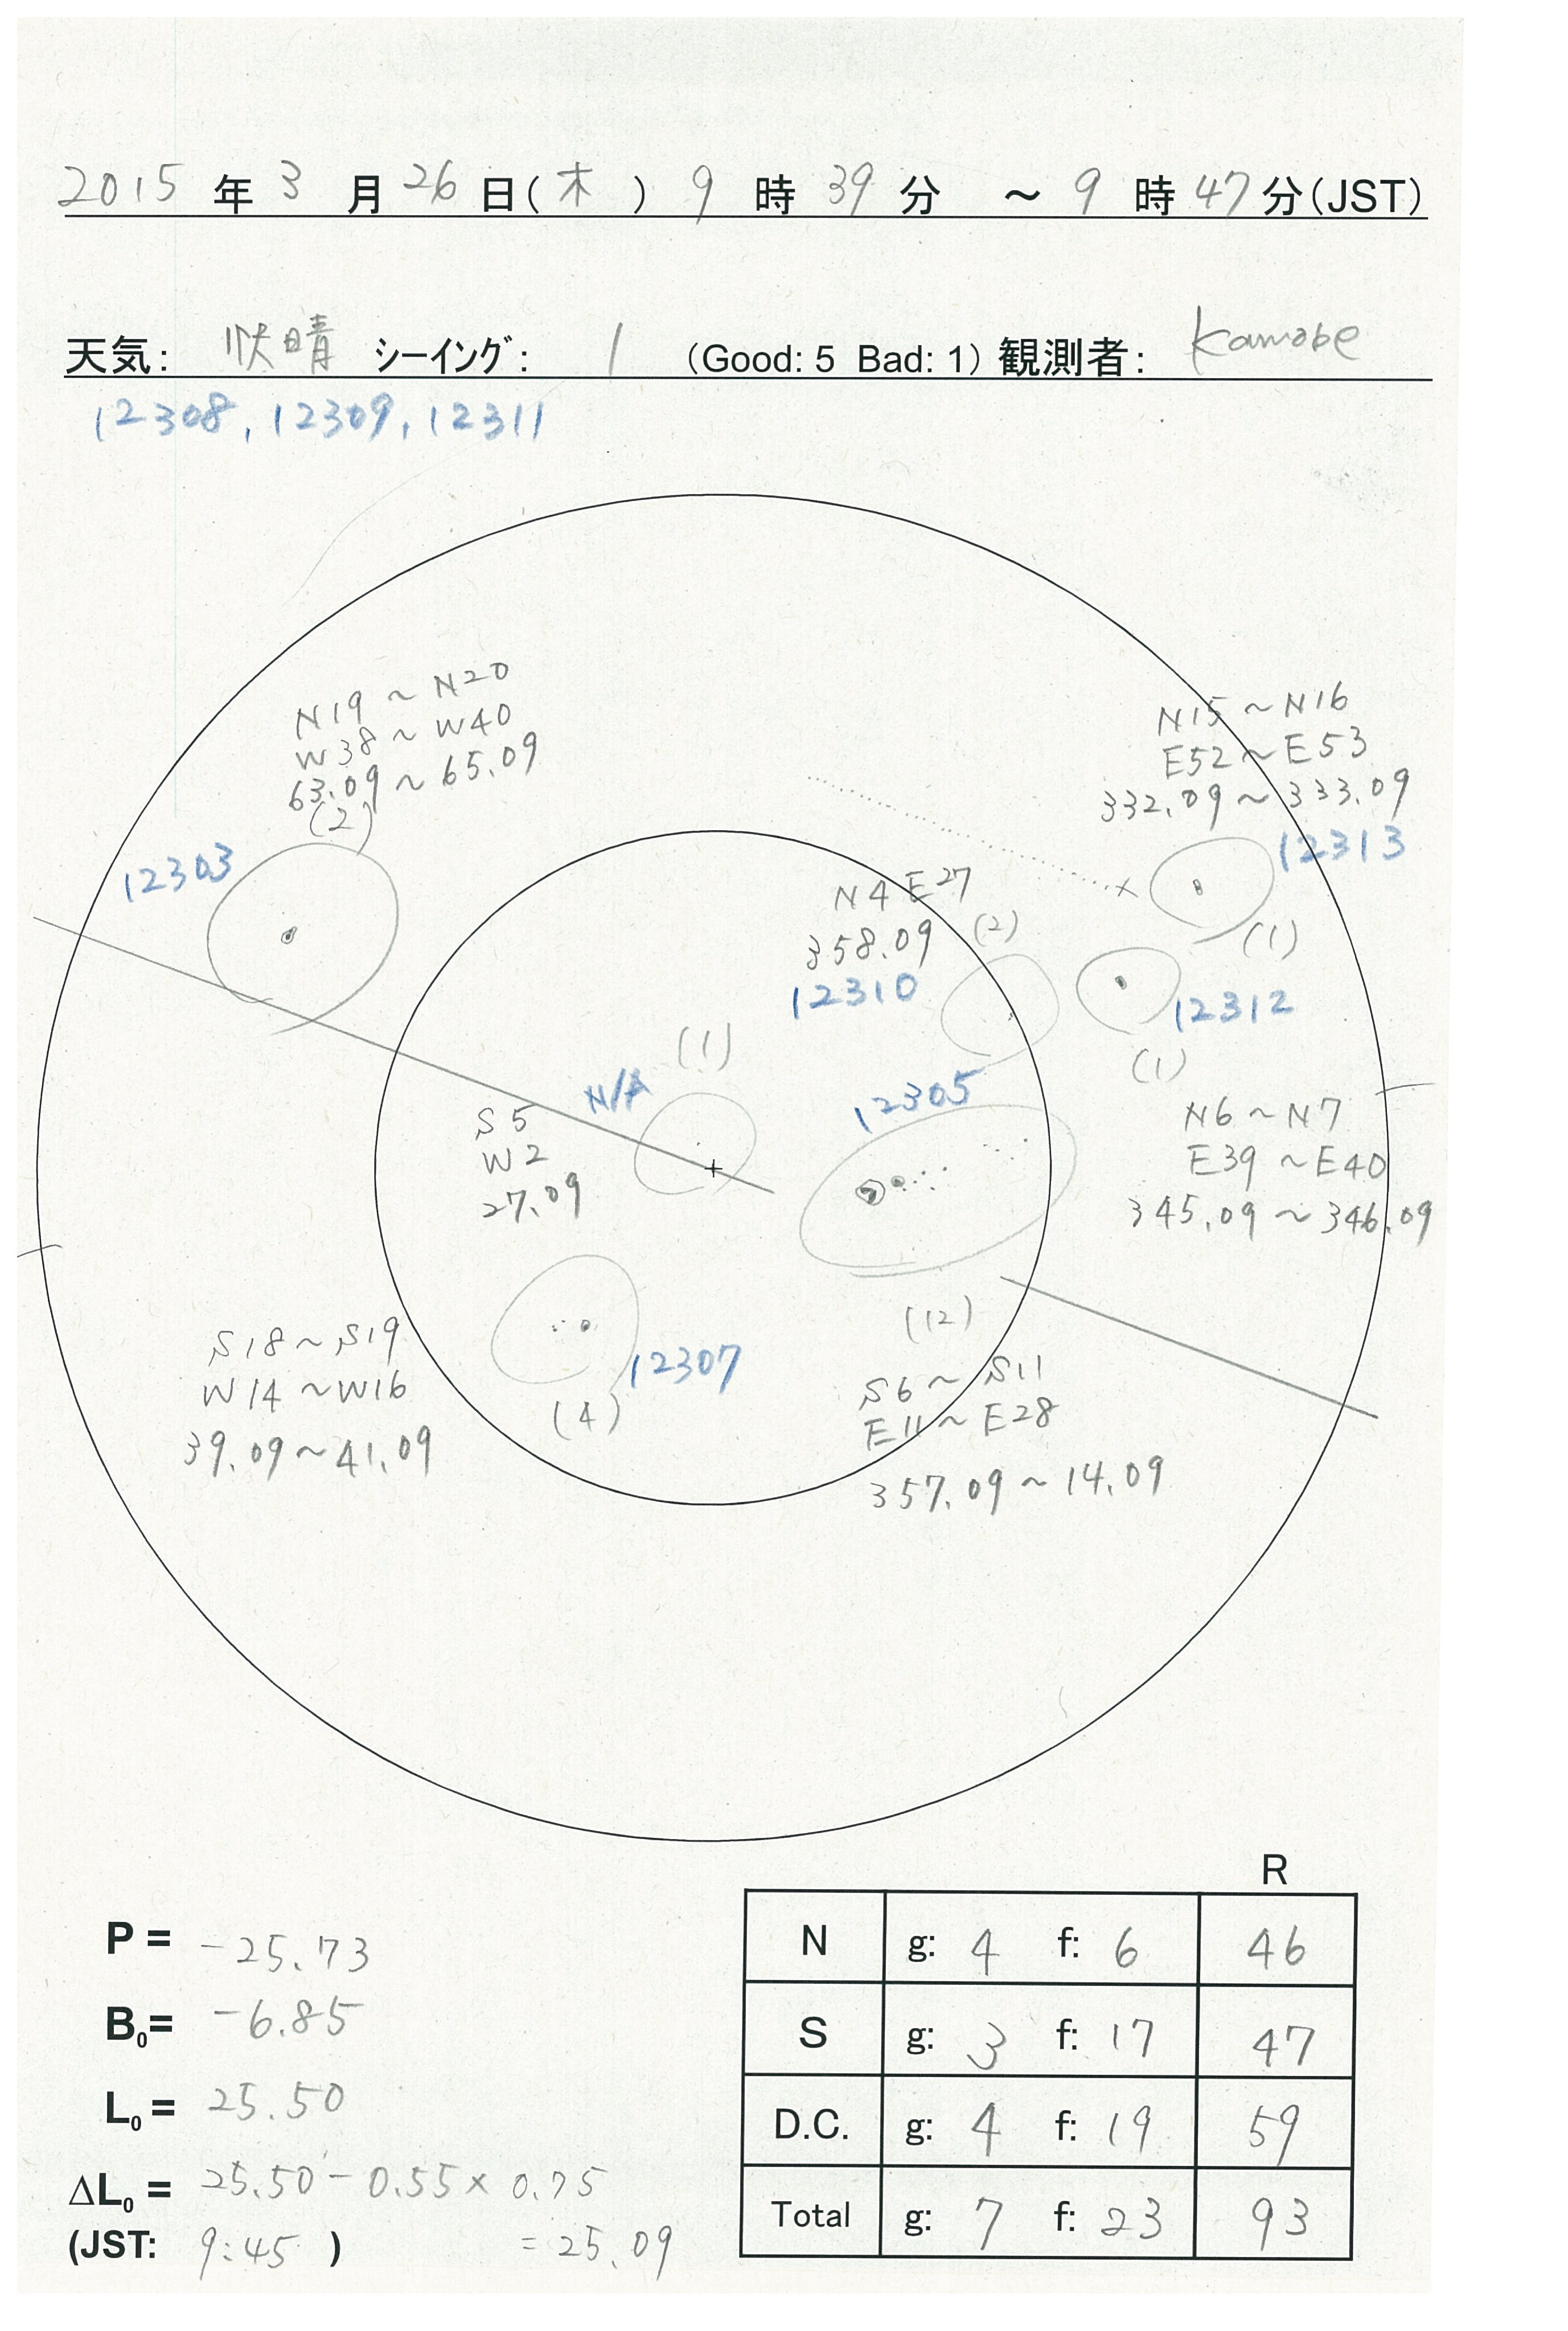 2015 年 3 月 26 日(木) 9 時 39 分 ～ 9 時 47 分(JST)
天気: 快晴 シーイング: 1 (Good: 5 Bad: 1) 観測者: Kamobe
12308, 12309, 12311
N19 ~ N20
W38 ~ W40
63.09 ~ 65.09
(2)
12303
N15 ~ N16
E52 ~ E53
332.09 ~ 333.09
12313
(1)
N4 E27
358.09
(2)
12310
12312
(1)
N6 ~ N7
E39 ~ E40
345.09 ~ 346.09
(1)
N/A
S5
W2
27.09
12305
(12)
S6 ~ S11
E11 ~ E28
357.09 ~ 14.09
12307
(4)
S18 ~ S19
W14 ~ W16
39.09 ~ 41.09
P = -25.73
B0 = -6.85
L0 = 25.50
ΔL0 = 25.50 - 0.55 × 0.75
(JST: 9:45 ) = 25.09
R
N g: 4 f: 6 46
S g: 3 f: 17 47
D.C. g: 4 f: 19 59
Total g: 7 f: 23 93